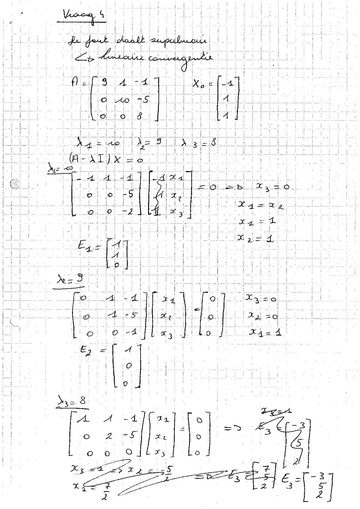 Vraag 4
de fout daalt
↳ lineaire convergentie
A = [ 9 1 -1 ; 0 10 -5 ; 0 0 8 ] X₀ = [ -1 ; 1 ; 1 ]
λ₁ = 10 λ₂ = 9 λ₃ = 8
(A - λI) X = 0
λ₁ = 10
[ -1 1 -1 ; 0 0 -5 ; 0 0 -2 ] [ x₁ ; x₂ ; x₃ ] = 0 => x₃ = 0
x₁ = x₂
x₁ = 1
x₂ = 1
E₁ = [ 1 ; 1 ; 0 ]
λ₂ = 9
[ 0 1 -1 ; 0 1 -5 ; 0 0 -1 ] [ x₁ ; x₂ ; x₃ ] = [ 0 ; 0 ; 0 ] x₃ = 0
x₂ = 0
x₁ = 1
E₂ = [ 1 ; 0 ; 0 ]
λ₃ = 8
[ 1 1 -1 ; 0 2 -5 ; 0 0 0 ] [ x₁ ; x₂ ; x₃ ] = [ 0 ; 0 ; 0 ] => E₃ [ -3 ; 5 ; 2 ]
x₃ = 1 => x₂ = 5/2 => E₃ = [ 7 ; 5 ; 2 ] E₃ = [ -3 ; 5 ; 2 ]
x₁ = 7/2